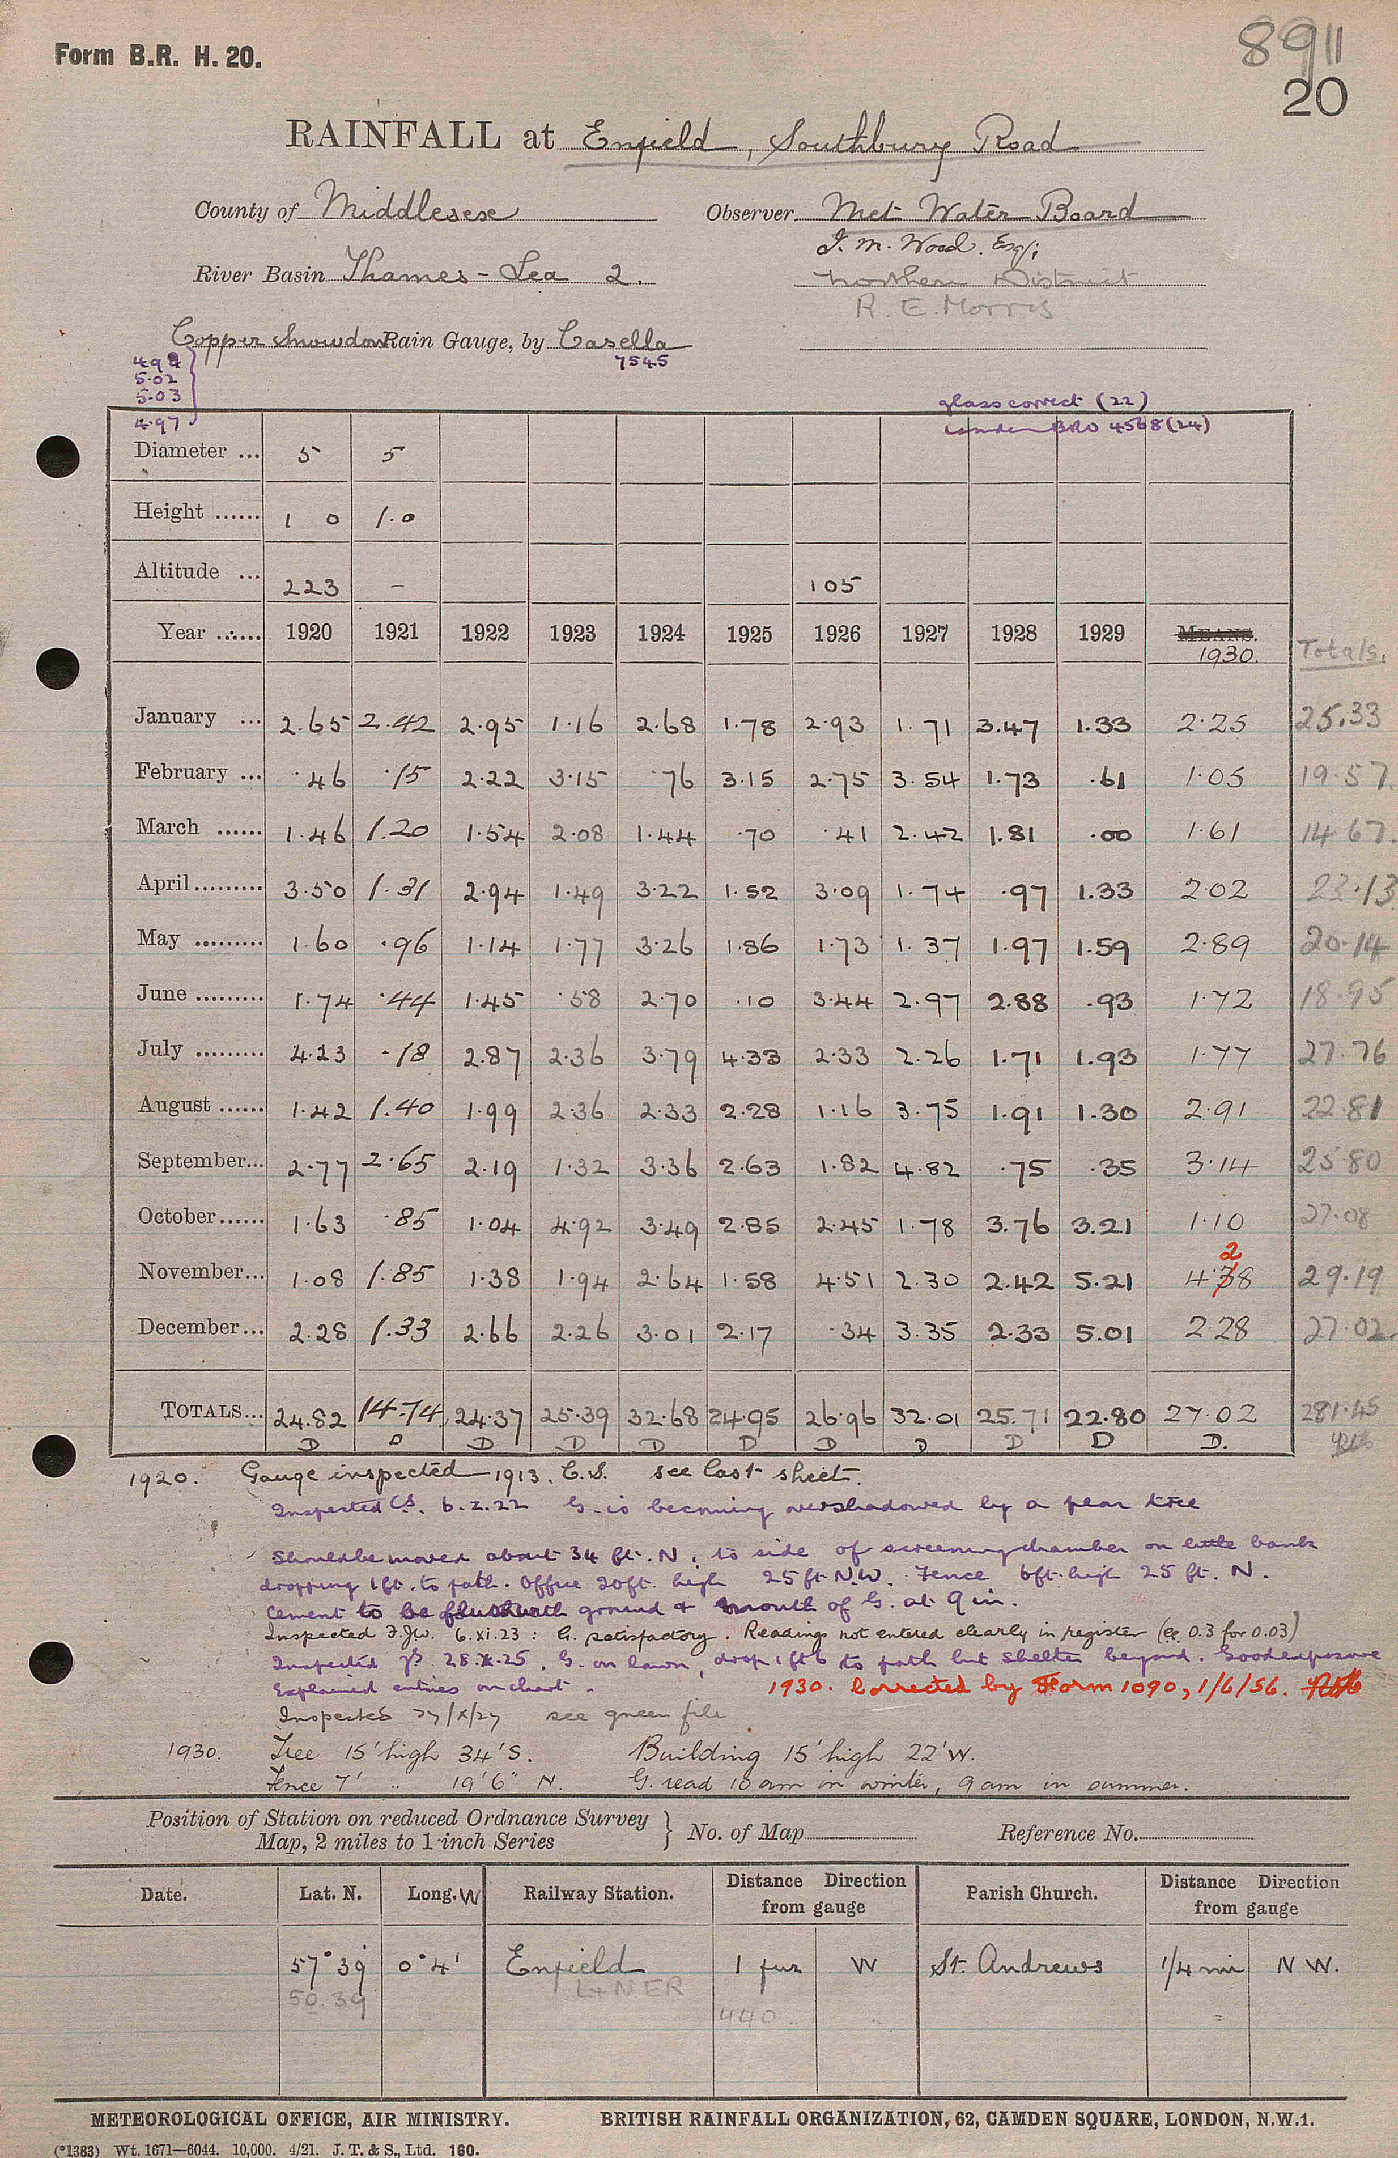 Form B.R. H. 20.
8911
20
RAINFALL at Enfield, Southbury Road
County of Middlesex Observer Met Water Board
J. M. Wood. Esq;
River Basin Thames - Lea 2. Northern District
R. E. Morris
Copper Snowdon Rain Gauge, by Casella
7545
4.99
5.02
5.03
4.97
glass correct (22)
BRO 4568 (24)
Diameter ... 5 5
Height ...... 1 0 1.0
Altitude ... 223 - 105
Year ...... 1920 1921 1922 1923 1924 1925 1926 1927 1928 1929 MEANS. 1930. Totals.
January ... 2.65 2.42 2.95 1.16 2.68 1.78 2.93 1.71 3.47 1.33 2.25 25.33
February ... .46 .15 2.22 3.15 .76 3.15 2.75 3.54 1.73 .61 1.05 19.57
March ...... 1.46 1.20 1.54 2.08 1.44 .70 .41 2.42 1.81 .00 1.61 14.67
April ......... 3.50 1.31 2.94 1.49 3.22 1.52 3.09 1.74 .97 1.33 2.02 23.13
May ......... 1.60 .96 1.14 1.77 3.26 1.86 1.73 1.37 1.97 1.59 2.89 20.14
June ......... 1.74 .44 1.45 .58 2.70 .10 3.44 2.97 2.88 .93 1.72 18.95
July ......... 4.23 .18 2.87 2.36 3.79 4.33 2.33 2.26 1.71 1.93 1.77 27.76
August ...... 1.42 1.40 1.99 2.36 2.33 2.28 1.16 3.75 1.91 1.30 2.91 22.81
September... 2.77 2.65 2.19 1.32 3.36 2.63 1.82 4.82 .75 .35 3.14 25.80
October...... 1.63 .85 1.04 4.92 3.49 2.85 2.45 1.78 3.76 3.21 1.10 27.08
2
November... 1.08 1.85 1.38 1.94 2.64 1.58 4.51 2.30 2.42 5.21 4.38 29.19
December... 2.28 1.33 2.66 2.26 3.01 2.17 .34 3.35 2.33 5.01 2.28 27.02
TOTALS... 24.82 14.74 24.37 25.39 32.68 24.95 26.96 32.01 25.71 22.80 27.02 281.45
D D D D D D D D D D D.
1920. Gauge inspected 1913. C.S. see last sheet.
Inspected CS. 6.2.22 G. is becoming overshadowed by a pear tree
Should be moved about 34 ft. N, to side of screening chamber on little bank
dropping 1ft. to path. Office 20ft. high 25ft N.W. Fence 6ft. high 25 ft. N.
Cement to be flush with ground & mouth of G. at 9 in.
Inspected F.J.W. 6.xi.23: G. satisfactory. Readings not entered clearly in register (eg 0.3 for 0.03)
Inspected 28.x.25. G. on lawn, drop 1ft 6 to path but shelter beyond. Good exposure
Explained entries on chart.
1930. Corrected by Form 1090, 1/6/56.
Inspected 27/x/27 see green file
1930. Tree 15' high 34' S. Building 15' high 22' W.
Fence 7' " 19'6" N. G. read 10 am in winter, 9 am in summer.
Position of Station on reduced Ordnance Survey
Map, 2 miles to 1-inch Series } No. of Map Reference No.
Date. Lat. N. Long. W Railway Station. Distance Direction from gauge Parish Church. Distance Direction from gauge
57° 39' 0° 4' Enfield 1 fur W St. Andrews 1/4 mi N W.
50.39 L+NER 440
METEOROLOGICAL OFFICE, AIR MINISTRY. BRITISH RAINFALL ORGANIZATION, 62, CAMDEN SQUARE, LONDON, N.W.1.
(*1383) Wt. 1671—6044. 10,000. 4/21. J. T. & S., Ltd. 160.